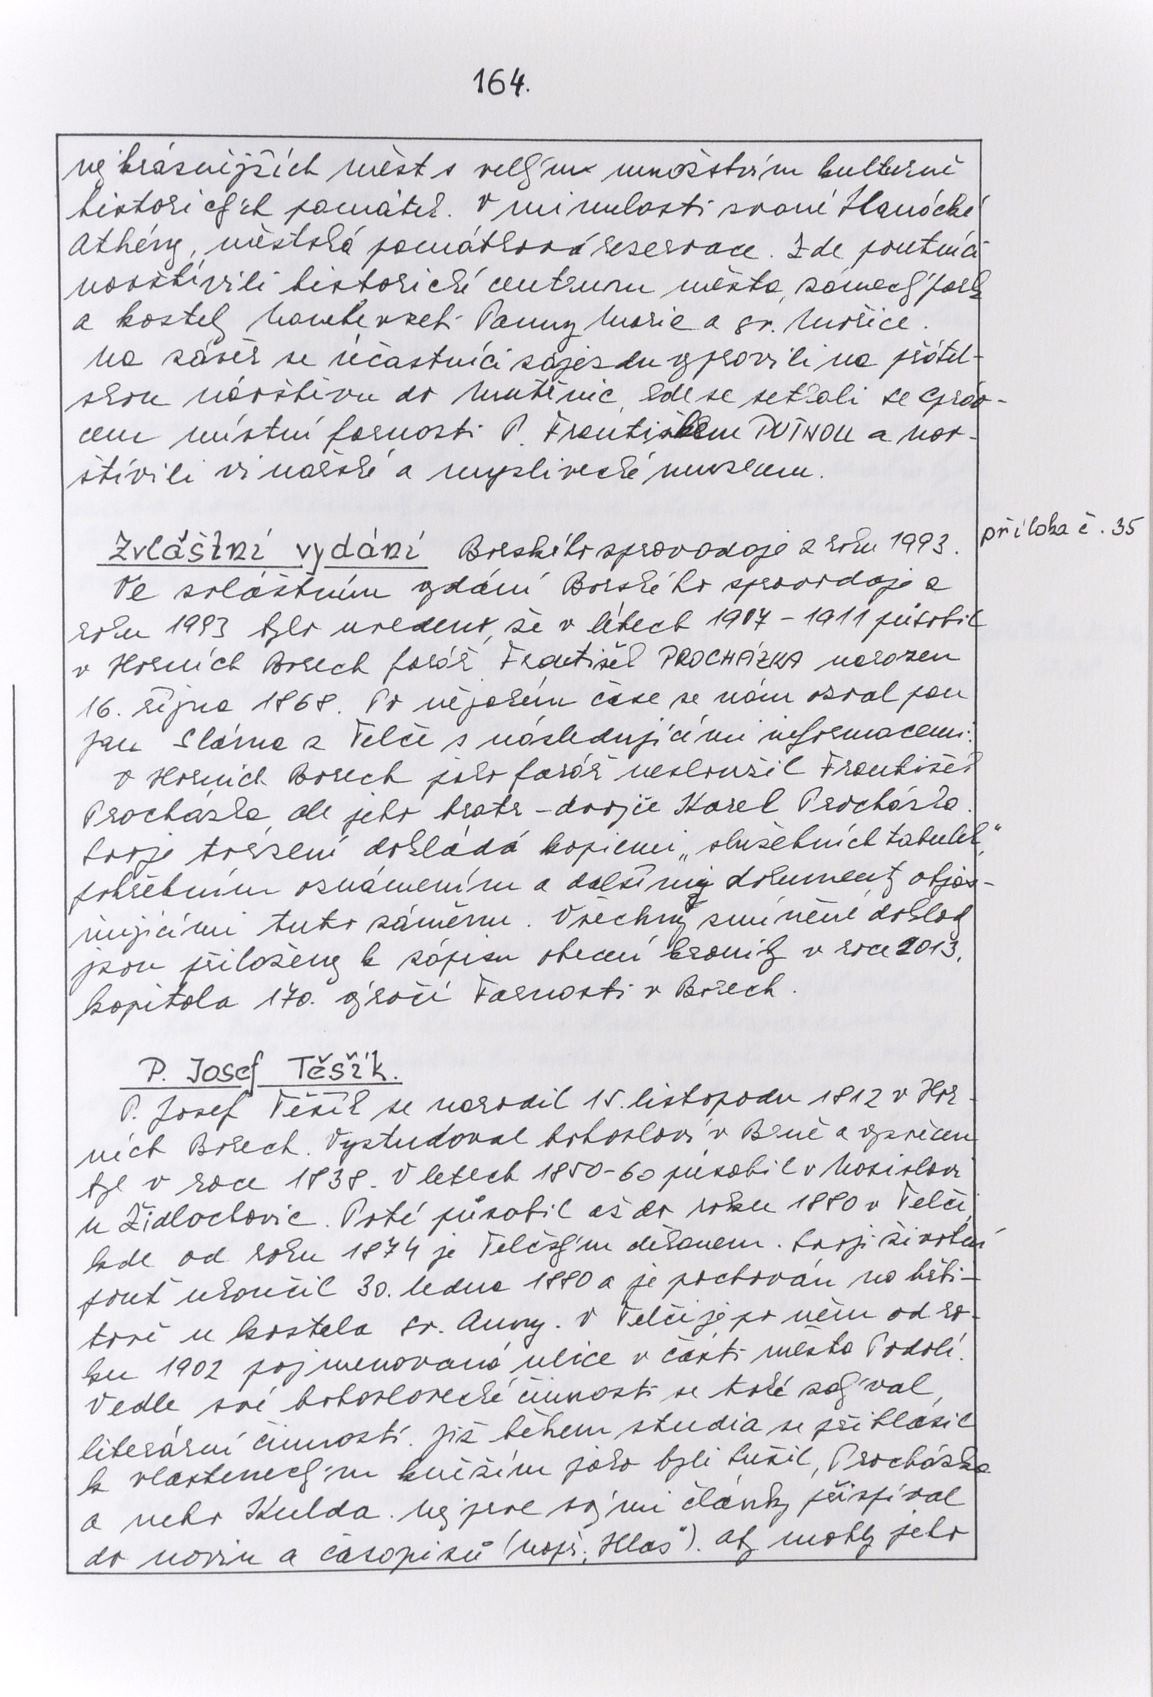 164.
nejkrásnějších měst s velkým množstvím kulturně
historických památek. V minulosti zvané Hanácké
Athény, městská památková reservace. Zde poutníci
navštívili historické centrum města, zámecký park
a kostely Nanebevzetí Panny Marie a sv. Mořice.
Na závěr se účastníci zájezdu vypravili na přátel-
skou návštěvu do Mutěnic, kde se setkali se správ-
cem místní farnosti P. Františkem PUTNOU a nav-
štívili vinařské a myslivecké muzeum.
Zvláštní vydání Borského zpravodaje z roku 1993.
příloha č. 35
Ve zvláštním vydání Borského zpravodaje z
roku 1993 bylo uvedeno, že v létech 1907 - 1911 působil
v Horních Borech farář František PROCHÁZKA narozen
16. října 1868. Po nějakém čase se nám ozval pan
Jan Sláma z Telče s následujícími informacemi:
V Horních Borech jako farář nesloužil František
Procházka ale jeho bratr - dvojče Karel Procházka.
Svoje tvrzení dokládá kopiemi „služebních tabulek"
pohřebním oznámením a dalšími dokumenty objas-
ňujícími tuto záměnu. Všechny zmíněné doklady
jsou přiloženy k zápisu obecní kroniky v roce 2013,
kapitola 170. výročí Farnosti v Borech.
P. Josef Těšík.
P. Josef Těšík se narodil 15. listopadu 1812 v Hor-
ních Borech. Vystudoval bohosloví v Brně a vysvěcen
byl v roce 1838. V letech 1850-60 působil v Nosislavi
u Židlochovic. Poté působil až do roku 1880 v Telči,
kde od roku 1874 je Telčským děkanem. Svoji životní
pouť ukončil 30. ledna 1880 a je pochován na hřbi-
tově u kostela sv. Anny. V Telči je po něm od ro-
ku 1902 pojmenovaná ulice v části města Podolí.
Vedle své bohoslovecké činnosti se také zabýval
literární činností. Již během studia se přihlásil
k vlasteneckým kněžím jako byli Sušil, Procházka
a nebo Kulda. Nejprve svými články přispíval
do novin a časopisů (např. „Hlas"). Aby mohly jeho